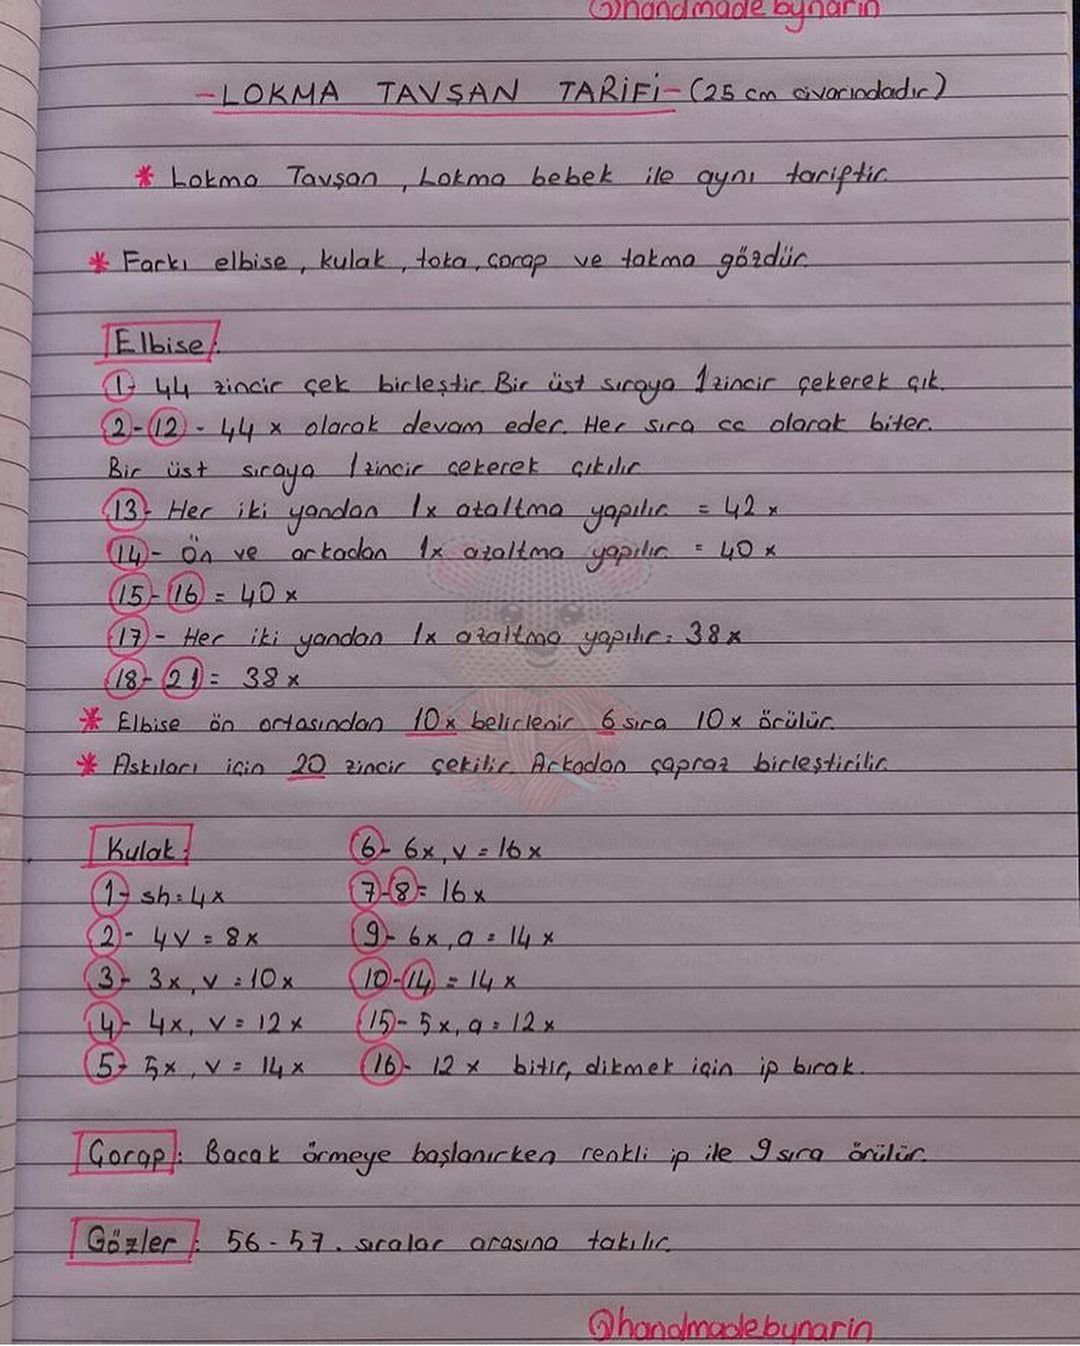 @handmadebynarin
-LOKMA TAVŞAN TARİFİ- (25 cm civarındadır)
* Lokma Tavşan, Lokma bebek ile aynı tariftir.
* Farkı elbise, kulak, toka, çorap ve takma gözdür.
Elbise:
1- 44 zincir çek birleştir. Bir üst sıraya 1 zincir çekerek çık.
2-12 - 44 x olarak devam eder. Her sıra cc olarak biter.
Bir üst sıraya 1 zincir çekerek çıkılır
13- Her iki yandan 1x azaltma yapılır = 42 x
14- Ön ve arkadan 1x azaltma yapılır = 40 x
15-16 = 40 x
17- Her iki yandan 1x azaltma yapılır = 38 x
18-21 = 38 x
* Elbise ön ortasından 10x belirlenir 6 sıra 10x örülür.
* Askıları için 20 zincir çekilir. Arkadan çapraz birleştirilir.
Kulak:
1- sh = 4x
2- 4v = 8x
3- 3x, v = 10x
4- 4x, v = 12x
5- 5x, v = 14x
6- 6x, v = 16x
7-8 = 16x
9- 6x, a = 14x
10-14 = 14x
15- 5x, a = 12x
16- 12 x bitir, dikmek için ip bırak.
Çorap: Bacak örmeye başlanırken renkli ip ile 9 sıra örülür.
Gözler: 56-57. sıralar arasına takılır.
@handmadebynarin